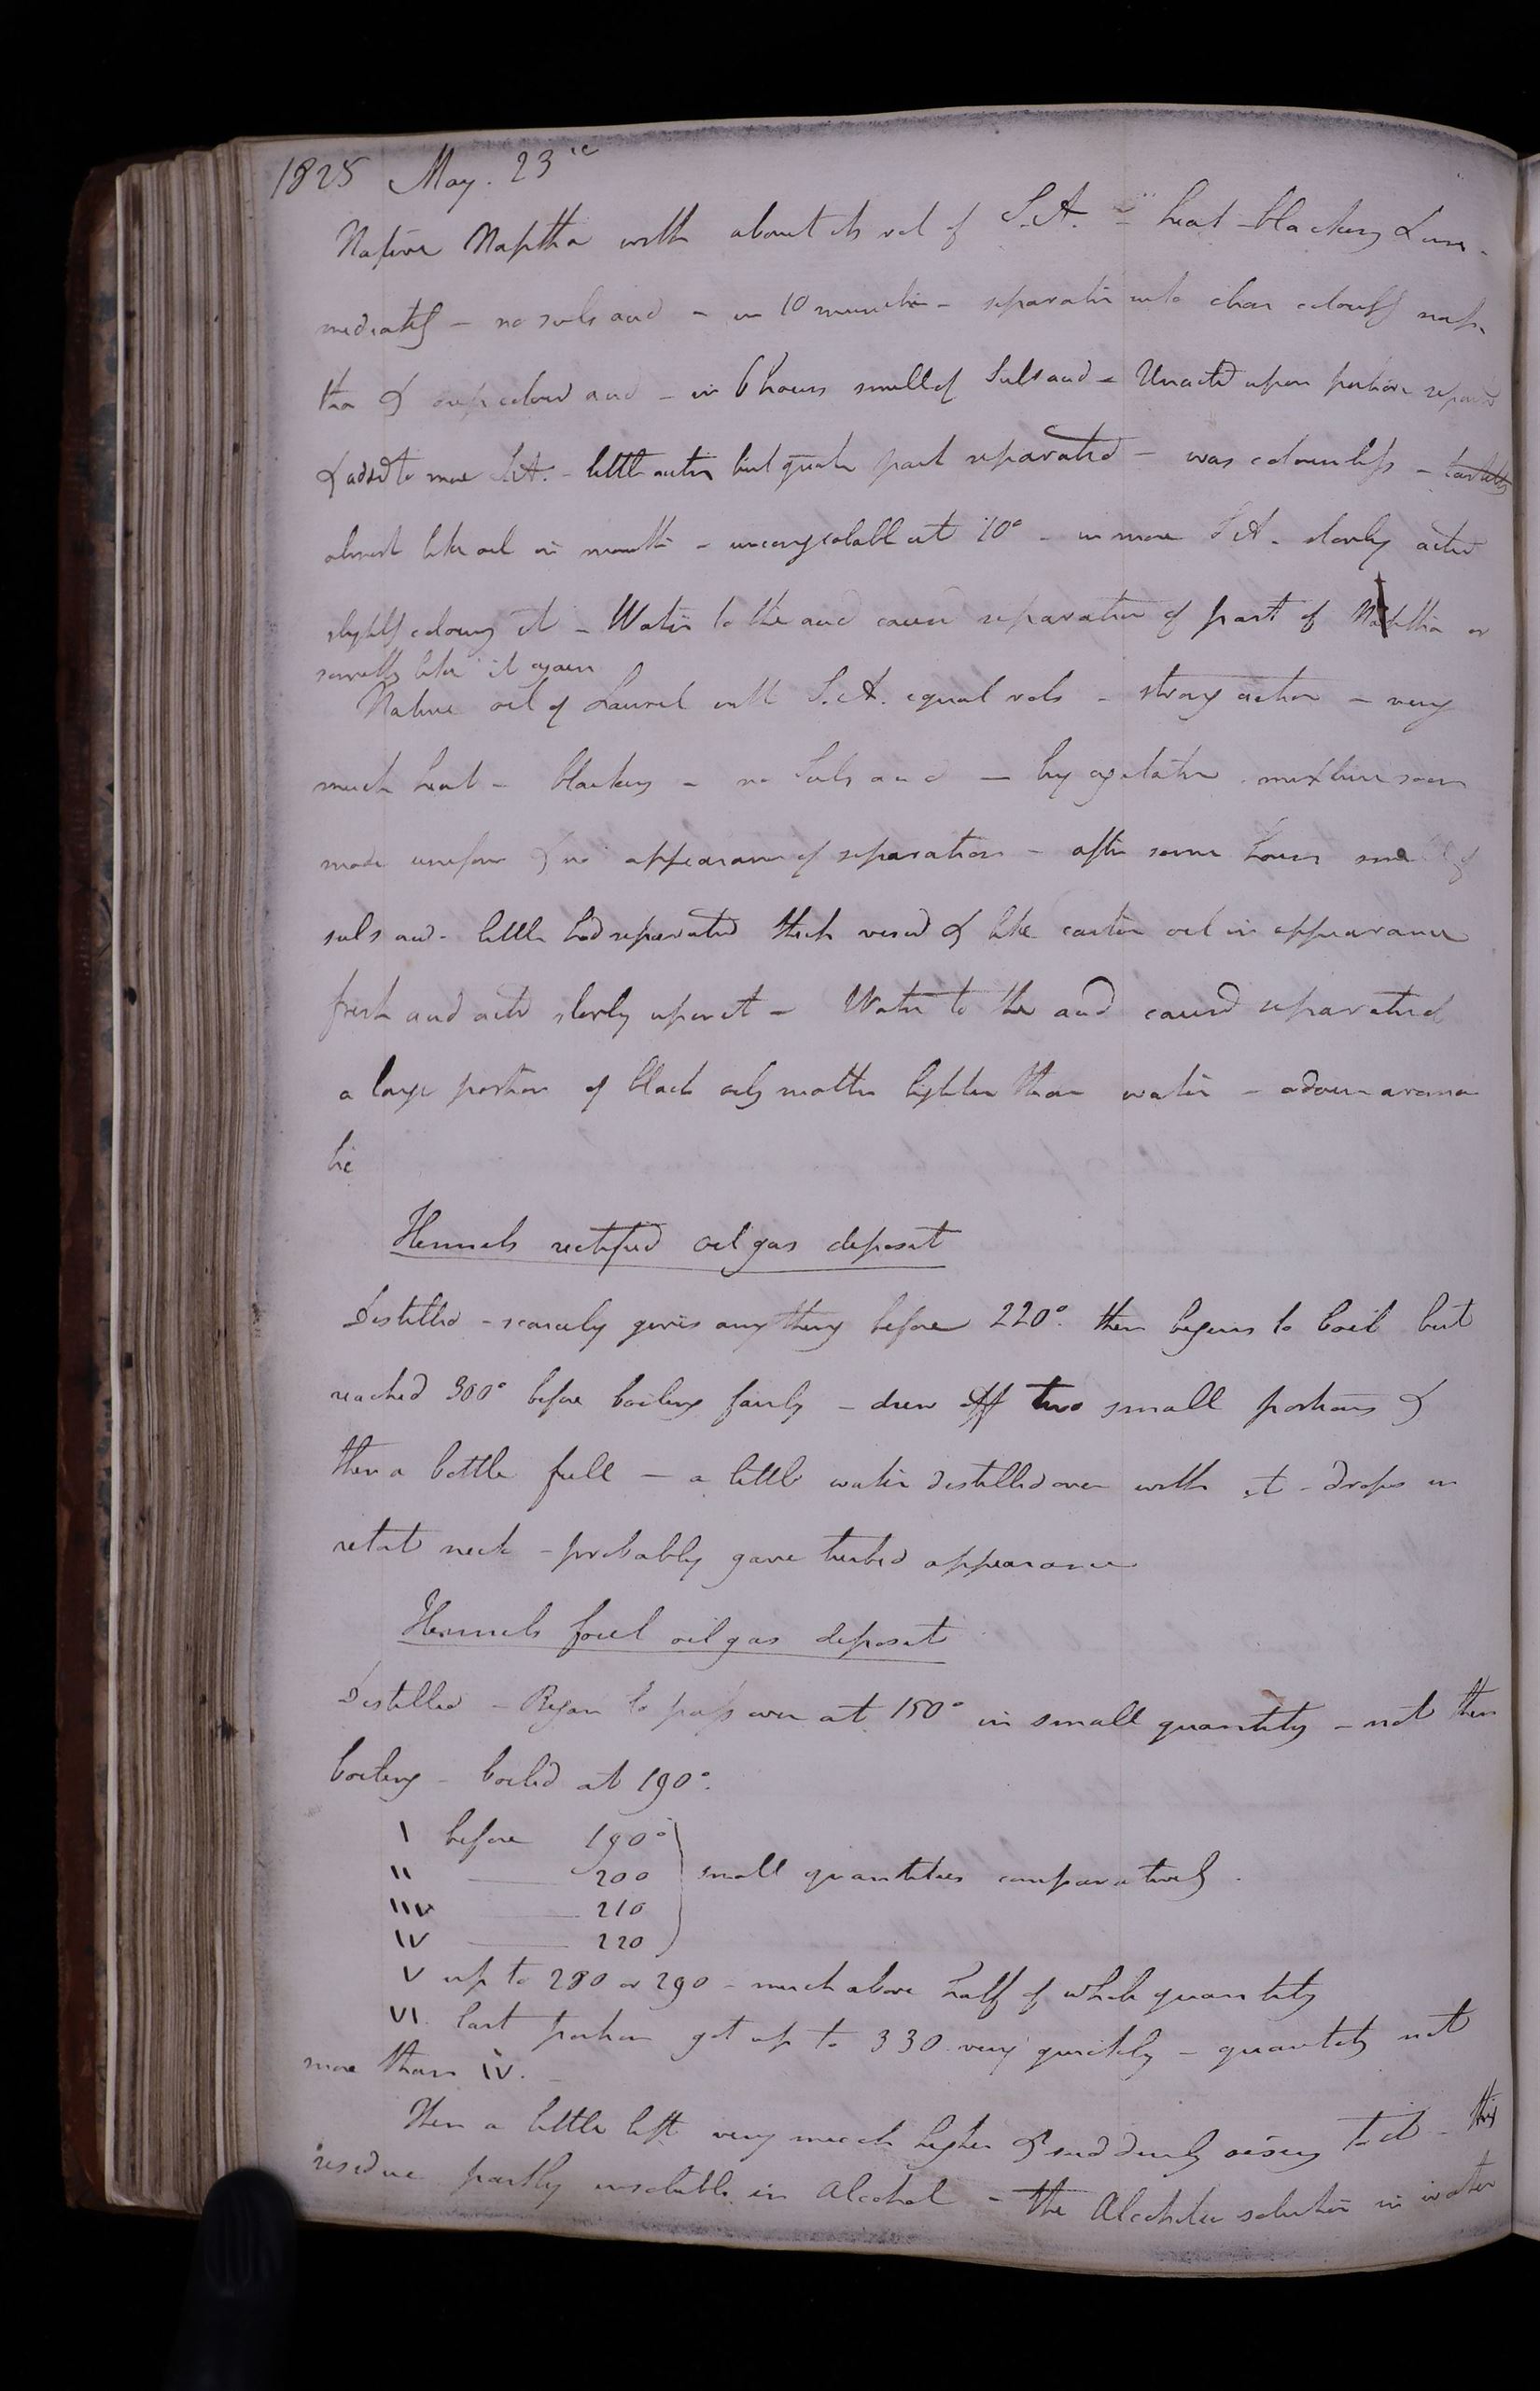 1825 May. 23rd
Native Naptha with about its vol of S.A. - heat - blackens & imme-
mediately - no sulp acid - in 10 minutes - separation into clear colourless nap-
tha & deep colored acid - in 6 hours smell of Sulp acid - Unacted upon portion separated
& added to more S.A. - little action but greater part separated - was colourless - tasteless
almost like oil in mouth - uncongealable at 10° - in more S.A. slowly acted
slightly colouring it - Water to the acid caused separation of part of Naptha or
something like it again
Native oil of Laurel with S.A. equal vols - strong action - very
much heat - blackens - no Sulp acid - by agitation mixture soon
made uniform & no appearance of separation - after some hours smell of
sulp acid - little had separated thick viscid & like castor oil in appearance
fresh acid acted slowly upon it - Water to the acid caused separated
a large portion of black oily matter lighter than water - odour aroma
tic
Hennels rectified oil gas deposit
Distilled - scarcely gives any thing before 220°. then begins to boil but
reached 300° before boiling fairly - drew off two small portions &
then a bottle full - a little water distilled over with it - drops in
retort neck - probably gave turbid appearance
Hennels foul oil gas deposit
Distilled - Began to pass over at 150° in small quantity - not then
boiling - boiled at 190°.
I before 190°
II —— 200 small quantities comparatively.
III —— 210
IV —— 220
V up to 280 or 290 - much above half of whole quantity
VI. last portion got up to 330 very quickly - quantity not
more than IV. -
Then a little left very much higher & suddenly rising to it - this
residue partly insoluble in Alcohol - the Alcoholic solution in water